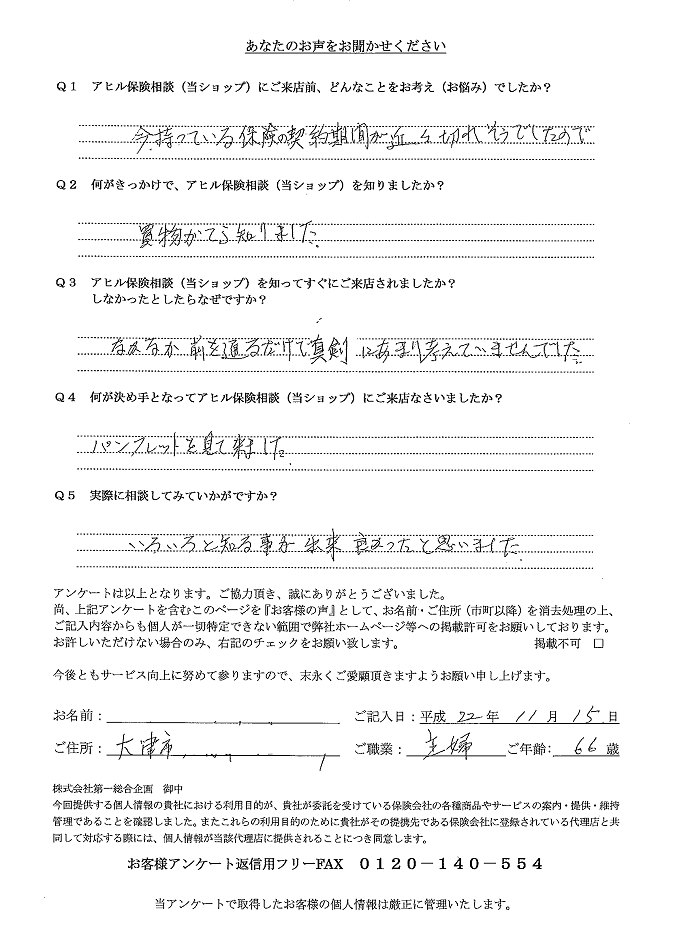 あなたのお声をお聞かせください
Q1 アヒル保険相談（当ショップ）にご来店前、どんなことをお考え（お悩み）でしたか？
今持っている保険の契約期間が近く切れそうでしたので
Q2 何がきっかけで、アヒル保険相談（当ショップ）を知りましたか？
買物がてら知りました.
Q3 アヒル保険相談（当ショップ）を知ってすぐにご来店されましたか？
しなかったとしたらなぜですか？
なかなか前を通るだけで真剣にあまり考えていませんでした.
Q4 何が決め手となってアヒル保険相談（当ショップ）にご来店なさいましたか？
パンフレットを見て来ました.
Q5 実際に相談してみていかがですか？
いろいろと知る事が出来良かったと思いました.
アンケートは以上となります。ご協力頂き、誠にありがとうございました。
尚、上記アンケートを含むこのページを『お客様の声』として、お名前・ご住所（市町以降）を消去処理の上、
ご記入内容からも個人が一切特定できない範囲で弊社ホームページ等への掲載許可をお願いしております。
お許しいただけない場合のみ、右記のチェックをお願い致します。 掲載不可 □
今後ともサービス向上に努めて参りますので、末永くご愛顧頂きますようお願い申し上げます。
お名前： ご記入日：平成 22 年 11 月 15 日
ご住所： 大津市 ご職業： 主婦 ご年齢： 66 歳
株式会社第一総合企画 御中
今回提供する個人情報の貴社における利用目的が、貴社が委託を受けている保険会社の各種商品やサービスの案内・提供・維持
管理であることを確認しました。またこれらの利用目的のために貴社がその提携先である保険会社に登録されている代理店と共
同して対応する際には、個人情報が当該代理店に提供されることにつき同意します。
お客様アンケート返信用フリーFAX 0120－140－554
当アンケートで取得したお客様の個人情報は厳正に管理いたします。